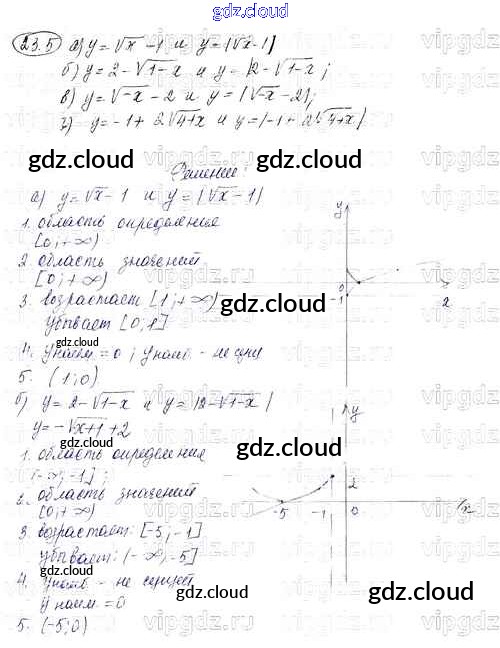 gdz.cloud
23.5 а) y = √x - 1 и y = |√x - 1|
б) y = 2 - √1-x и y = |2 - √1-x|;
в) y = √-x - 2 и y = |√-x - 2|;
г) y = -1 + 2√4+x и y = |-1 + 2√4+x|
gdz.cloud gdz.cloud
Решение:
а) y = √x - 1 и y = |√x - 1|
1. область определения
[0; +∞)
2. область значений
[0; +∞)
3. возрастает [1; +∞)
убывает [0; 1]
gdz.cloud
4. y наим. = 0; y наиб - не сущ
5. (1; 0)
y
0
-1
2
gdz.cloud
б) y = 2 - √1-x и y = |2 - √1-x|
y = -√x+1 + 2
gdz.cloud
1. область определения
(-∞; -1];
2. область значений
[0; +∞)
3. возрастает: [-5; -1]
убывает: (-∞; -5]
4. y наиб - не сущест
y наим = 0
5. (-5; 0)
y
2
-5 -1 0 x
gdz.cloud
gdz.cloud
gdz.cloud
vipgdz.ru